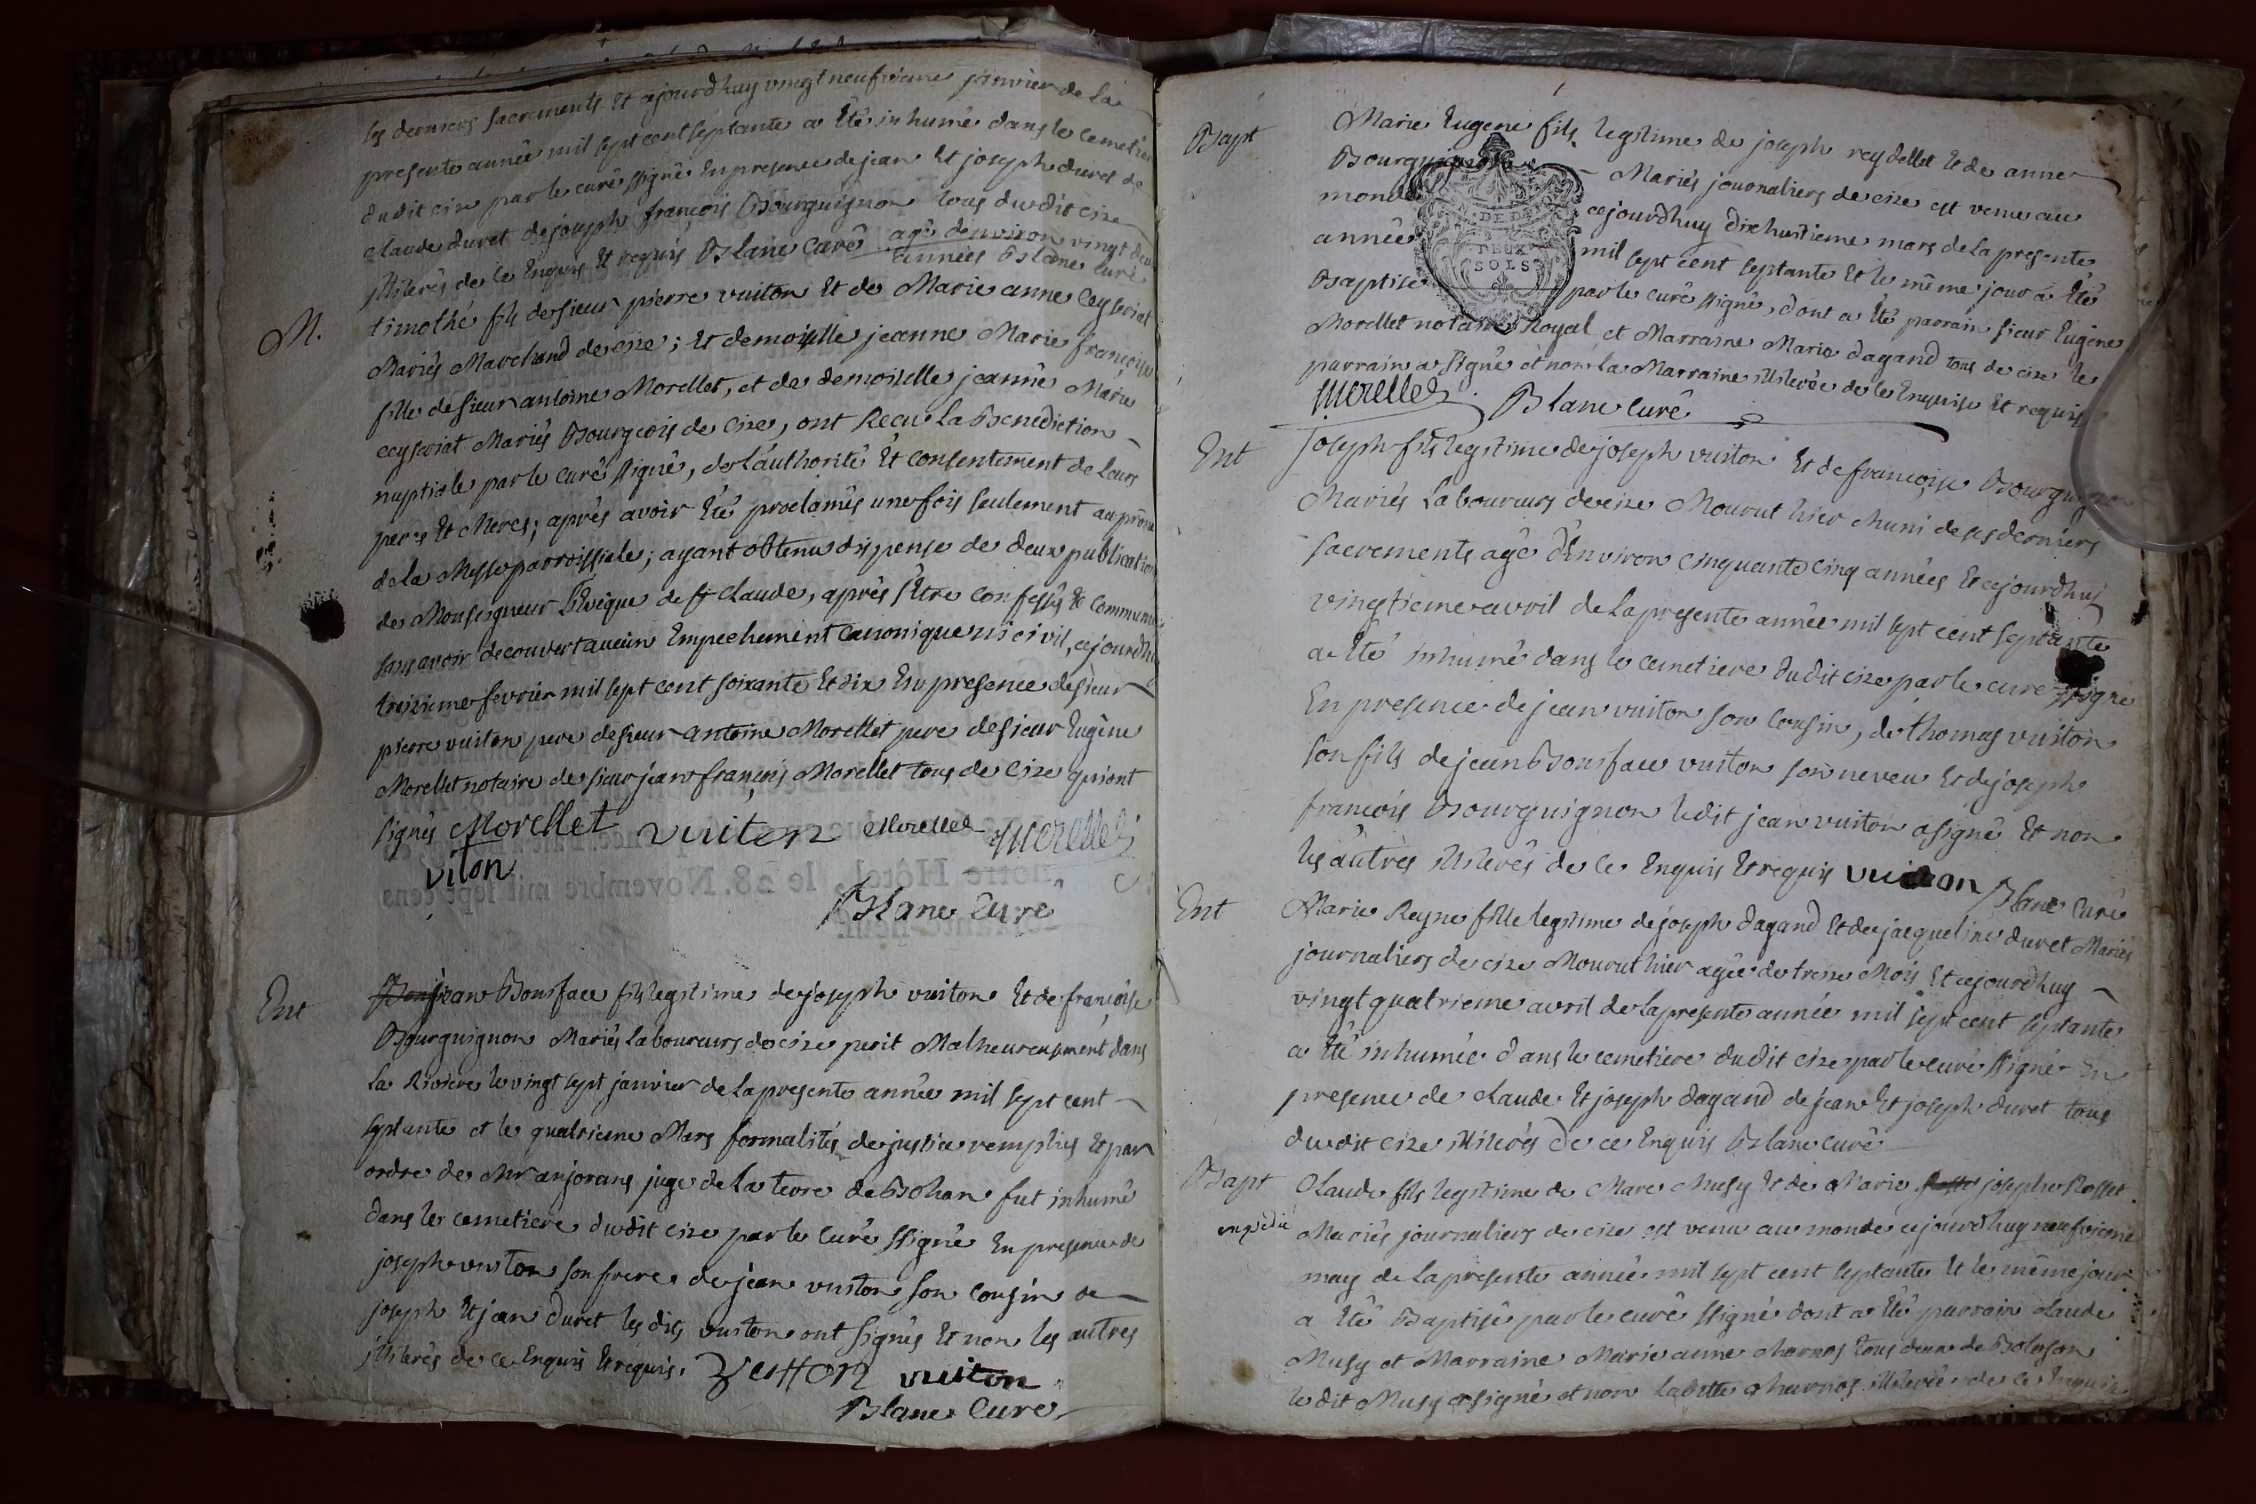 les derniers sacrements Et ajourdhuy vingt neufvieme janvier de la
presente année mil sept cent septante a Eté inhumé dans le cemetiere
dudit cize par le curé ssigné En presence de jean Et joseph duret de
claude duret de joseph françois Bourguignon tous dudit cize
illiterés de ce Enquis Et requis Blanc Curé agé denviron vingt deux
années Blanc Curé
M. timothé fils de sieur pierre vuiton Et de Marie anne Ceyseriat
Mariés Marchand de cize; Et demoiselle jeanne Marie françoise
fille de sieur antoine Morellet, et de demoiselle jeanne Marie
ceyseriat Mariés Bourgeois de Cize, ont Recu la Benediction
nuptiale par le curé ssigné, de l'authorité Et consentement de Leurs
peres Et Meres; après avoir Eté proclamés une fois seulement au prône
de la Messe parroissiale; ayant obtenu dispense de deux publications
de Monseigneur l'Eveque de st Claude, après s'Etre confessés & Communiés
sans avoir decouvert aucun Empechement Canonique ni civil, cejourdhuy
treizieme fevrier mil sept cent soixante Et dix En presence de sieur
pierre vuiton pere de sieur antoine Morellet pere de sieur Eugène
Morellet notaire de sieur jean françois Morellet tous de Cize qui ont
signés Morellet vuiton Morellet Morellet
viton
Blanc Curé
Ent jean Boniface fils legitime de joseph vuiton Et de françoise
Bourguignon Mariés laboureurs de cize perit Malheureusement dans
la Riviere le vingt sept janvier de la presente année mil sept cent
septante et le quatrieme Mars formalités de justice remplies Et par
ordre de Mr anjorans juge de la terre de Bohan fut inhumé
dans le cemetiere dudit cize par le Curé ssigné En presence de
joseph vuiton son frere de jean vuiton son cousin de
joseph Et jean duret les dits vuiton ont signés Et non les autres
illiterés de ce Enquis Et requis. vuitton vuiton
Blanc Curé
Bapt Marie Eugene fils legitime de joseph reydellet Et de anne
Bourguignon Mariés journaliers de cize est venu au
monde cejourdhuy dixhuitieme mars de la presente
année mil sept cent septante Et le même jour a Eté
Baptisé par le curé ssigné, dont a Eté parrain sieur Eugène
DEUX
SOLS
Morellet notaire Royal et Marraine Marie dagand tous de cize le
parrain a signé et non la Marraine illiterée de ce Enquise Et requise
Morellet Blanc Curé
Ent joseph fils legitime de joseph vuiton Et de françoise Bourguignon
Mariés Laboureurs de cize Mourut hier Muni de ses derniers
sacrements agé d'Environ cinquante cinq années Et cejourdhuy
vingtieme avril de la presente année mil sept cent septante
a Eté inhumé dans le cemetiere dudit cize par le curé ssigné
En presence de jean vuiton son Cousin, de thomas vuiton
son fils de jean Boniface vuiton son neveu Et de joseph
françois Bourguignon ledit jean vuiton a signé Et non
les autres illiterés de ce Enquis Et requis vuiton Blanc Curé
Ent Marie Reyne fille legitime de joseph dagand Et de jacqueline duret Mariés
journaliers de cize Mourut hier agée de treize Mois Et cejourdhuy
vingt quatrieme avril de la presente année mil sept cent septante
a Eté inhumée dans le cemetiere dudit cize par le curé ssigné En
presence de claude Et joseph dagand de jean Et joseph duret tous
dudit cize illiterés De ce Enquis Blanc curé
Bapt Claude fils legitime de Marc Musy Et de Marie josephe Rosset
expedié Mariés journaliers de cize est venu au monde cejourdhuy neufvieme
may de la presente année mil sept cent septante Et le même jour
a Eté Baptisé par le curé ssigné dont a Eté parrain Claude
Musy et Marraine Marie anne charnos tous deux de Bolozon
le dit Musy a signé et non la ditte charnos illiterée de ce Enquise